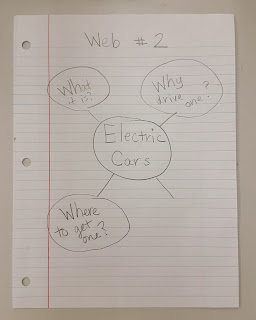 Web #2
What
it is?
Why
drive
one?
Electric
Cars
Where
to get
one?